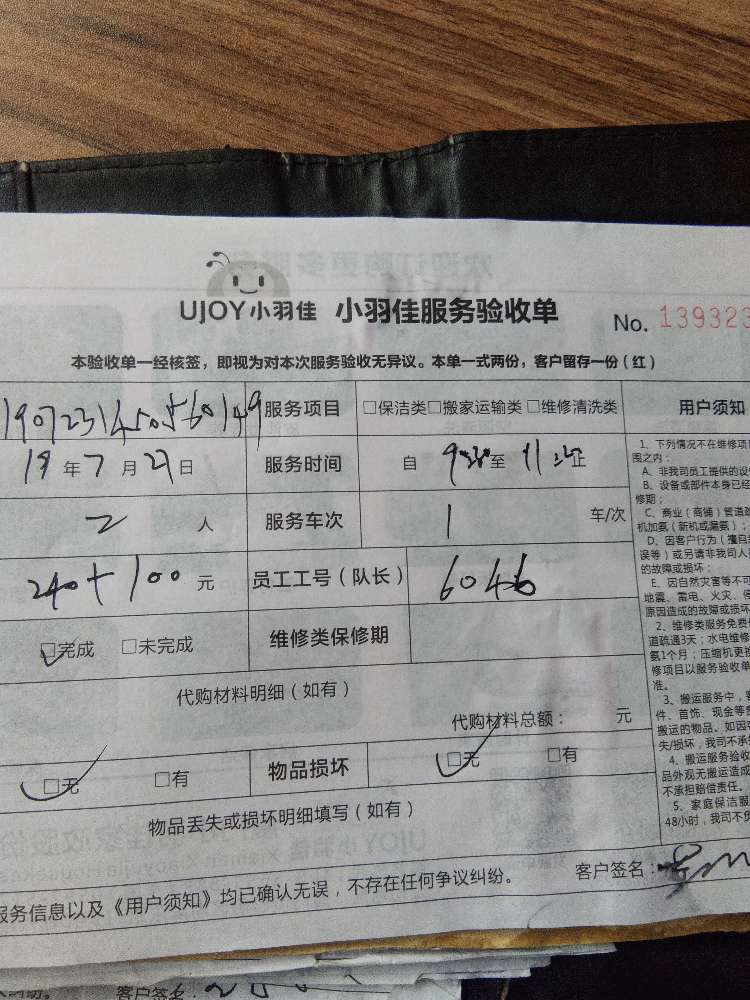 UJOY小羽佳 小羽佳服务验收单 No. 139323
本验收单一经核签，即视为对本次服务验收无异议。本单一式两份，客户留存一份（红）
服务项目 □保洁类□搬家运输类□维修清洗类
19年7月27日 服务时间 自 至 止
2 人 服务车次 1 车/次
240+100 元 员工工号（队长） 6046
□完成 □未完成 维修类保修期
代购材料明细（如有）
代购材料总额： 元
□无 □有 物品损坏 □无 □有
物品丢失或损坏明细填写（如有）
服务信息以及《用户须知》均已确认无误，不存在任何争议纠纷。 客户签名：
用户须知
1、下列情况不在维修项
围之内：
A、非我司员工提供的设
B、设备或部件本身已经
修期；
C、商业（商铺）管道疏
机加氨（新机或漏氨）；
D、因客户行为（擅自
误等）或另请非我司人
的故障或损坏；
E、因自然灾害等不可
地震、雷电、火灾、
原因造成的故障或损坏
2、维修类服务免费
道疏通3天；水电维修
氨1个月；压缩机更换
修项目以服务验收单
准。
3、搬运服务中，
件、首饰、现金等
搬运的物品。如因
失/损坏，我司不承
4、搬运服务验收
品外观无搬运造成
不承担赔偿责任。
5、家庭保洁服
48小时，我司不负
客户签名